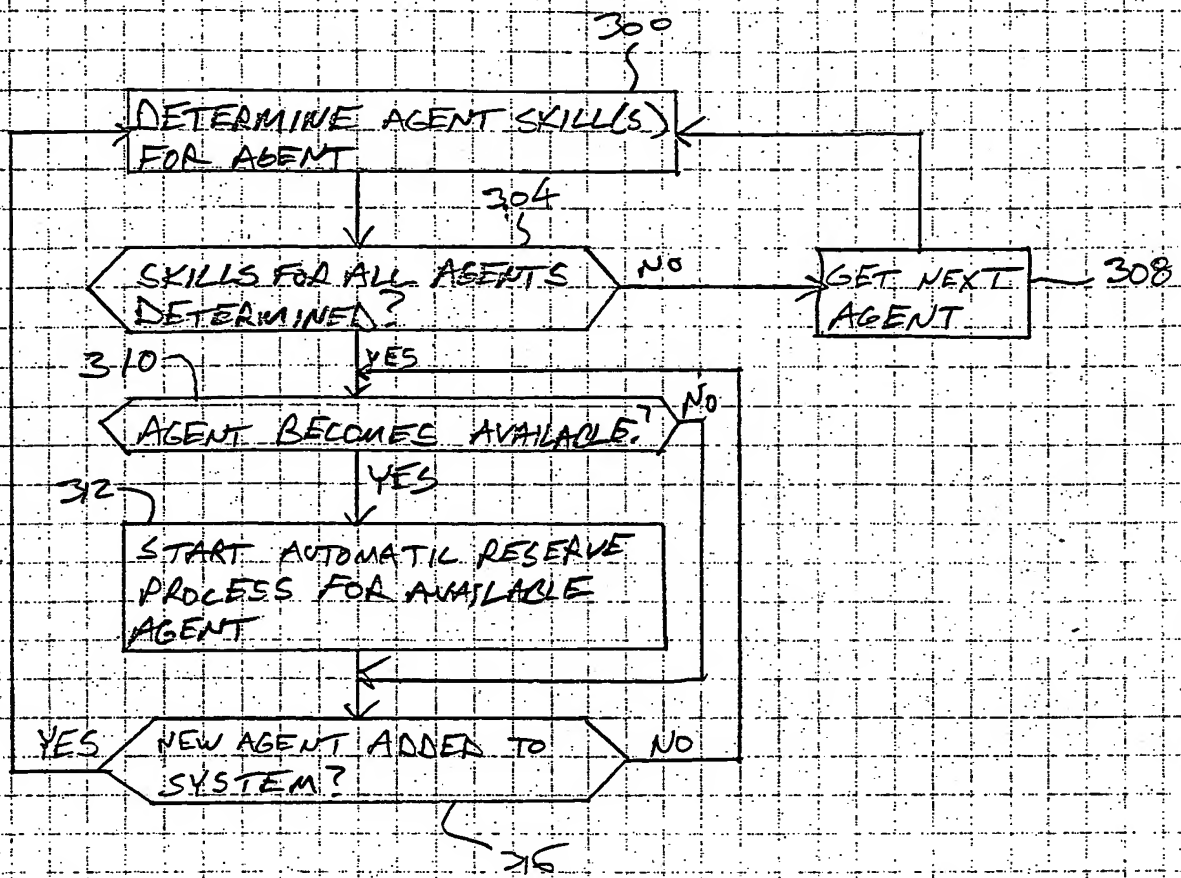 300
DETERMINE AGENT SKILL(S)
FOR AGENT
304
SKILLS FOR ALL AGENTS
DETERMINED?
NO
GET NEXT
AGENT
308
YES
310
AGENT BECOMES AVAILABLE?
NO
YES
312
START AUTOMATIC RESERVE
PROCESS FOR AVAILABLE
AGENT
YES
NEW AGENT ADDED TO
SYSTEM?
NO
316